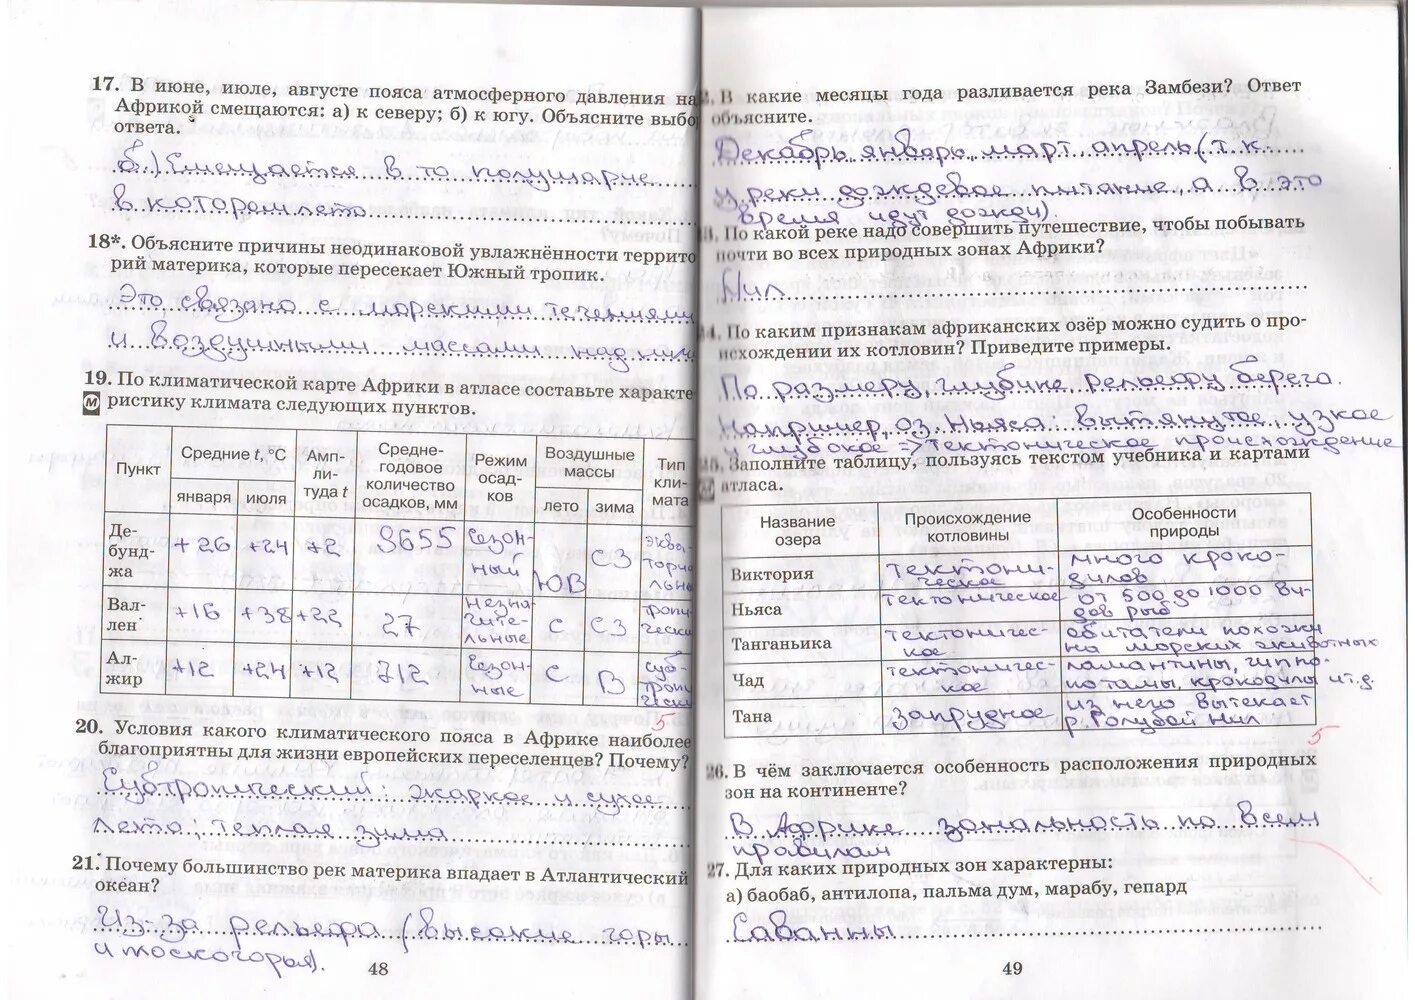 17. В июне, июле, августе пояса атмосферного давления на
Африкой смещаются: а) к северу; б) к югу. Объясните выбо
ответа.
б.) Смещается в то полушарие
в котором лето
18*. Объясните причины неодинаковой увлажнённости террито
рий материка, которые пересекает Южный тропик.
Это связано с морскими течениями
и воздушными массами над ними
19. По климатической карте Африки в атласе составьте характе
м ристику климата следующих пунктов.
Пункт
Средние t, °C
января
июля
Амп-
ли-
туда t
Средне-
годовое
количество
осадков, мм
Режим
осад-
ков
Воздушные
массы
лето
зима
Тип
кли-
мата
Де-
бунд-
жа
+26 +24 +2 9655 Сезон-
ный ЮВ СЗ эква-
ториа
льны
Вал-
лен
+16 +38 +22 27 незна-
читe-
льные С СЗ тропи-
чески
Ал-
жир
+12 +24 +12 712 Сезон-
ные С В суб-
тропи
чески
5
20. Условия какого климатического пояса в Африке наиболее
благоприятны для жизни европейских переселенцев? Почему?
Субтропический: жаркое и сухое
лето, теплая зима
21. Почему большинство рек материка впадает в Атлантический
океан?
Из-за рельефа (высокие горы
и плоскогорья).
48
2. В какие месяцы года разливается река Замбези? Ответ
объясните.
Декабрь, январь, март, апрель (т.к.
у реки дождевое питание, а в это
время идут дожди).
3. По какой реке надо совершить путешествие, чтобы побывать
почти во всех природных зонах Африки?
Нил
4. По каким признакам африканских озёр можно судить о про-
исхождении их котловин? Приведите примеры.
По размеру, глубине рельефу берега.
Например, оз. Ньяса: вытянутое, узкое
и глубокое => тектоническое происхождение
25. Заполните таблицу, пользуясь текстом учебника и картами
атласа.
Название
озера
Происхождение
котловины
Особенности
природы
Виктория тектони-
ческое много кроко-
дилов
Ньяса тектоническое от 500 до 1000 ви-
дов рыб
Танганьика тектоничес-
кое обитатели похожи
на морских животных
Чад тектоничес-
кое ламантины, гиппо-
потамы, крокодилы и т.д.
Тана запрудное из него вытекает
р. Голубой Нил
5
26. В чём заключается особенность расположения природных
зон на континенте?
В Африке зональность по всем
правилам
27. Для каких природных зон характерны:
а) баобаб, антилопа, пальма дум, марабу, гепард
Саванны
49